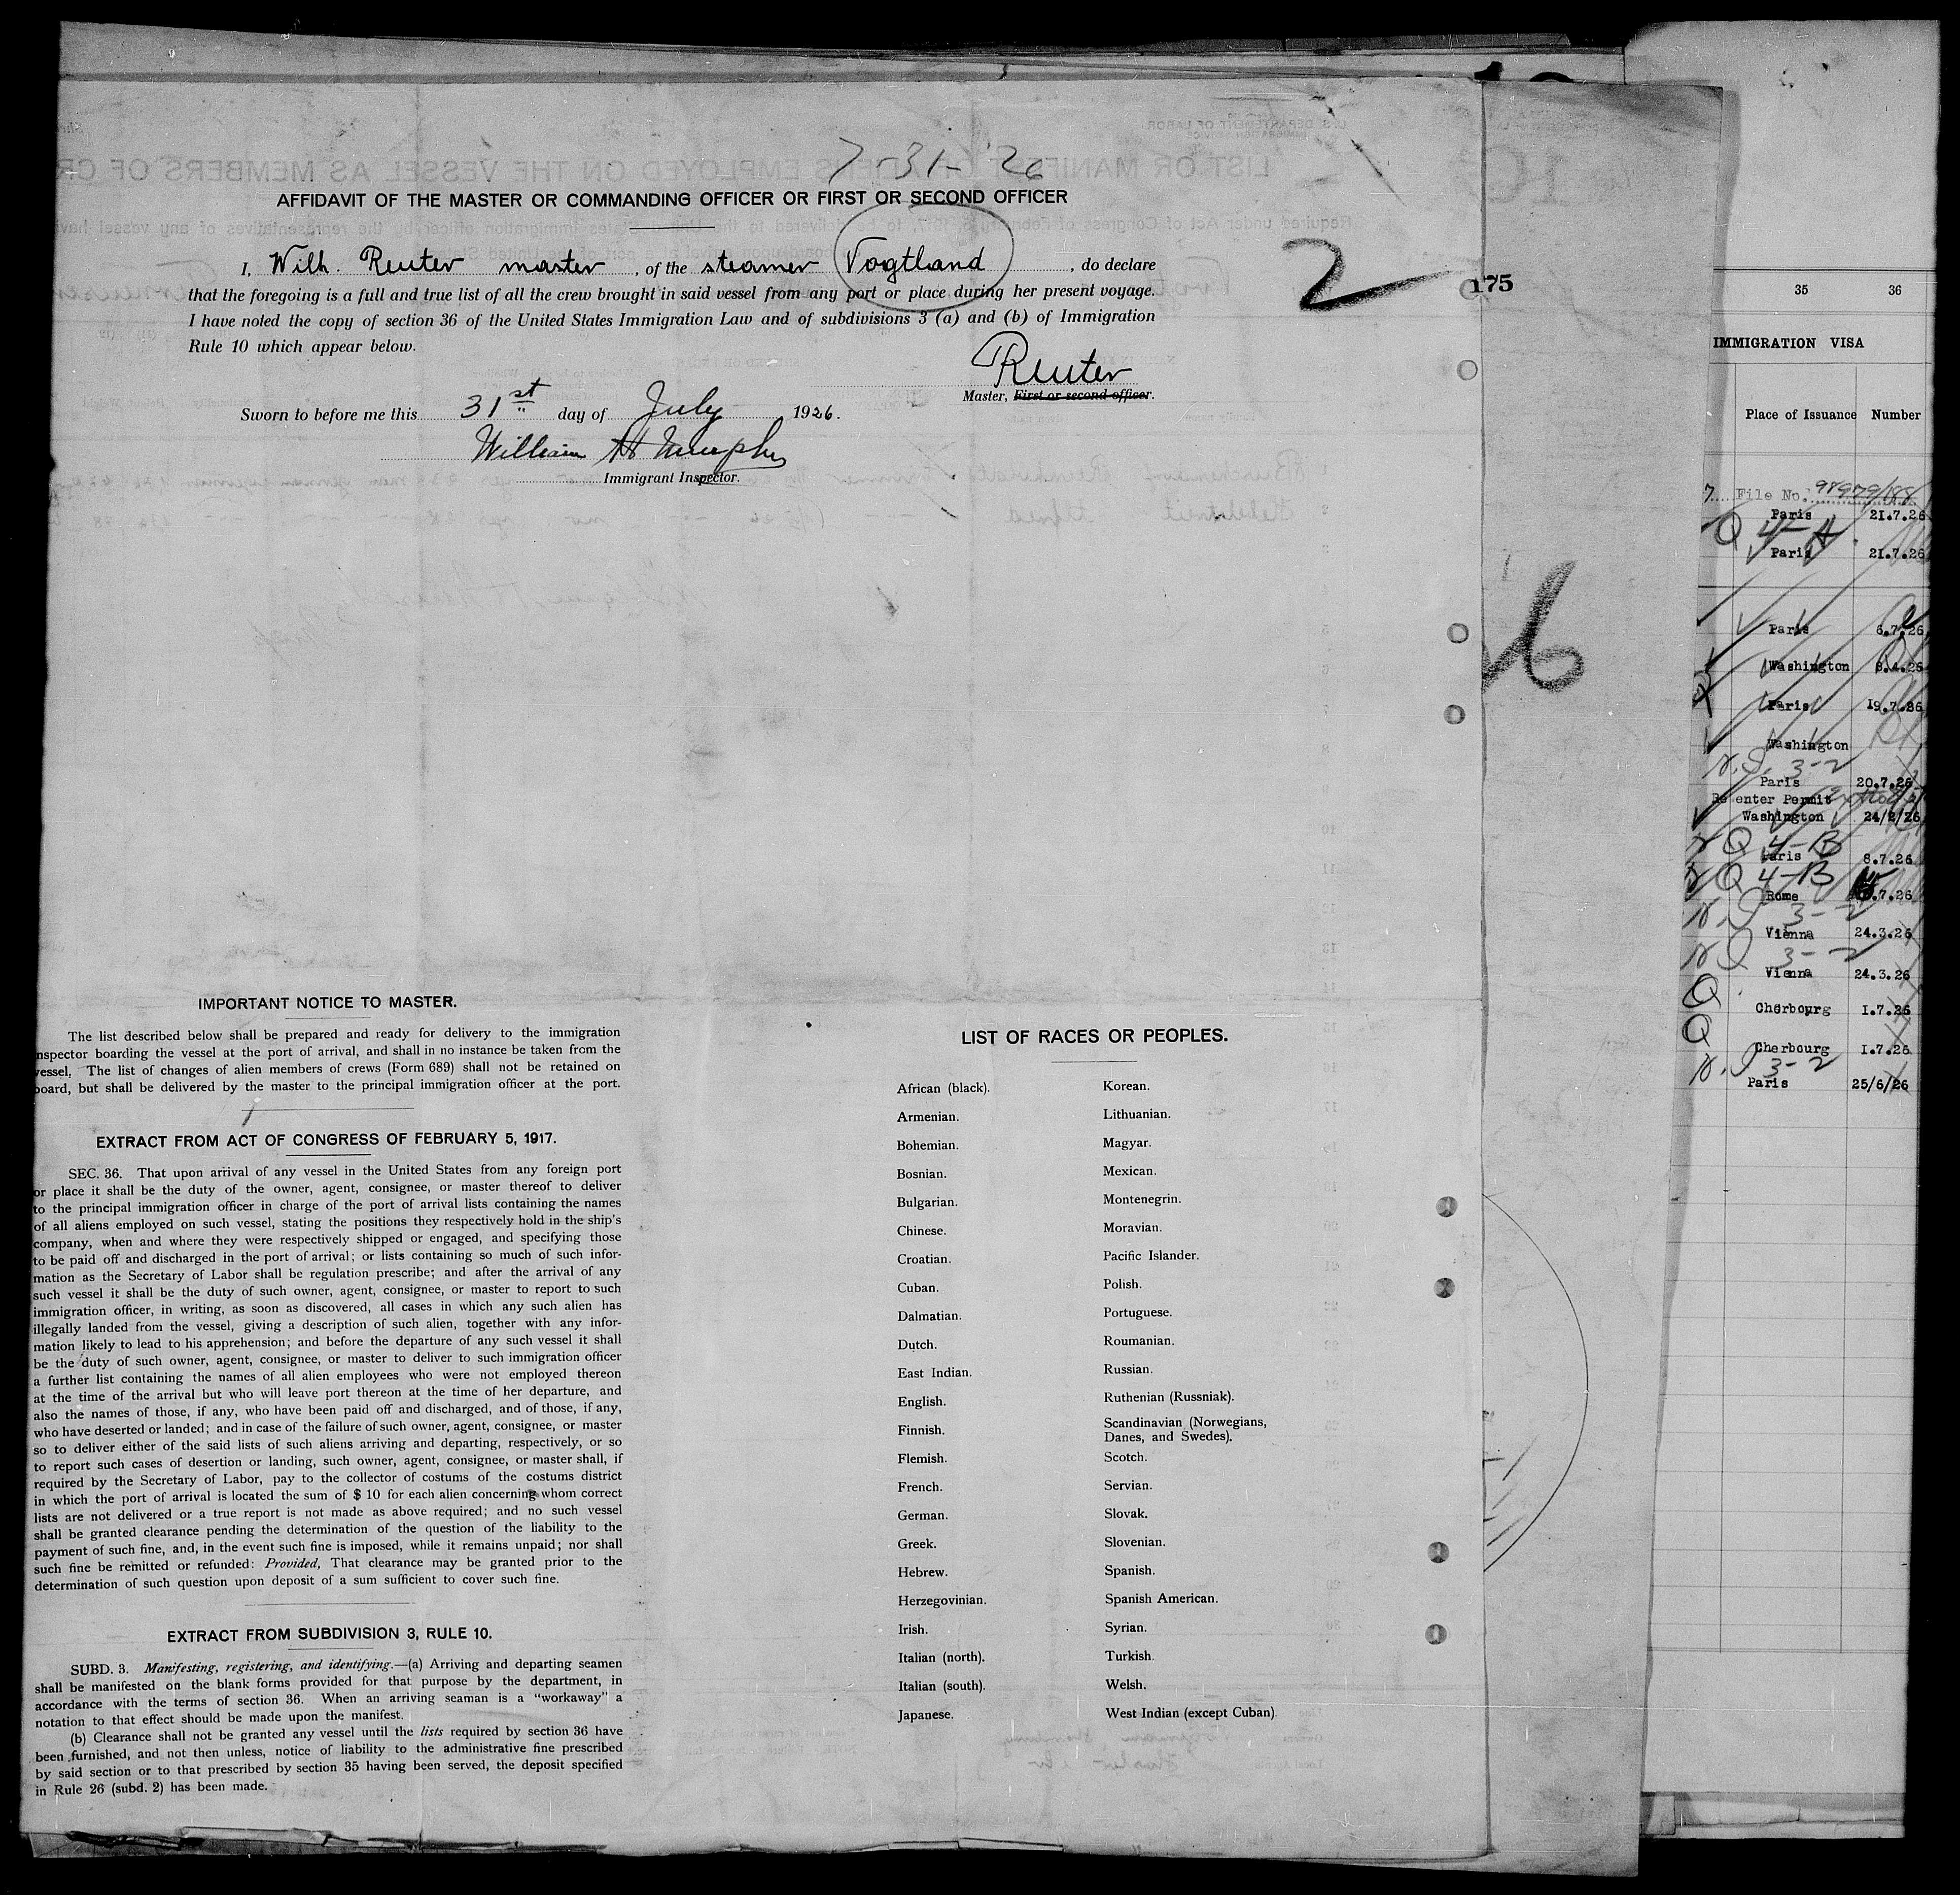 7-31-'26
AFFIDAVIT OF THE MASTER OR COMMANDING OFFICER OR FIRST OR SECOND OFFICER
I, Wilh. Reuter master, of the steamer Vogtland, do declare
that the foregoing is a full and true list of all the crew brought in said vessel from any port or place during her present voyage.
I have noted the copy of section 36 of the United States Immigration Law and of subdivisions 3 (a) and (b) of Immigration
Rule 10 which appear below.
Reuter
Master, First or second officer.
Sworn to before me this 31st day of July 1926.
William H Murphy
Immigrant Inspector.
2
175
6
IMPORTANT NOTICE TO MASTER.
The list described below shall be prepared and ready for delivery to the immigration
nspector boarding the vessel at the port of arrival, and shall in no instance be taken from the
vessel. The list of changes of alien members of crews (Form 689) shall not be retained on
board, but shall be delivered by the master to the principal immigration officer at the port.
EXTRACT FROM ACT OF CONGRESS OF FEBRUARY 5, 1917.
SEC. 36. That upon arrival of any vessel in the United States from any foreign port
or place it shall be the duty of the owner, agent, consignee, or master thereof to deliver
to the principal immigration officer in charge of the port of arrival lists containing the names
of all aliens employed on such vessel, stating the positions they respectively hold in the ship's
company, when and where they were respectively shipped or engaged, and specifying those
to be paid off and discharged in the port of arrival; or lists containing so much of such infor-
mation as the Secretary of Labor shall be regulation prescribe; and after the arrival of any
such vessel it shall be the duty of such owner, agent, consignee, or master to report to such
immigration officer, in writing, as soon as discovered, all cases in which any such alien has
illegally landed from the vessel, giving a description of such alien, together with any infor-
mation likely to lead to his apprehension; and before the departure of any such vessel it shall
be the duty of such owner, agent, consignee, or master to deliver to such immigration officer
a further list containing the names of all alien employees who were not employed thereon
at the time of the arrival but who will leave port thereon at the time of her departure, and
also the names of those, if any, who have been paid off and discharged, and of those, if any,
who have deserted or landed; and in case of the failure of such owner, agent, consignee, or master
so to deliver either of the said lists of such aliens arriving and departing, respectively, or so
to report such cases of desertion or landing, such owner, agent, consignee, or master shall, if
required by the Secretary of Labor, pay to the collector of costums of the costums district
in which the port of arrival is located the sum of $ 10 for each alien concerning whom correct
lists are not delivered or a true report is not made as above required; and no such vessel
shall be granted clearance pending the determination of the question of the liability to the
payment of such fine, and, in the event such fine is imposed, while it remains unpaid; nor shall
such fine be remitted or refunded: Provided, That clearance may be granted prior to the
determination of such question upon deposit of a sum sufficient to cover such fine.
EXTRACT FROM SUBDIVISION 3, RULE 10.
SUBD. 3. Manifesting, registering, and identifying.—(a) Arriving and departing seamen
shall be manifested on the blank forms provided for that purpose by the department, in
accordance with the terms of section 36. When an arriving seaman is a "workaway" a
notation to that effect should be made upon the manifest.
(b) Clearance shall not be granted any vessel until the lists required by section 36 have
been furnished, and not then unless, notice of liability to the administrative fine prescribed
by said section or to that prescribed by section 35 having been served, the deposit specified
in Rule 26 (subd. 2) has been made.
LIST OF RACES OR PEOPLES.
African (black). Korean.
Armenian. Lithuanian.
Bohemian. Magyar.
Bosnian. Mexican.
Bulgarian. Montenegrin.
Chinese. Moravian.
Croatian. Pacific Islander.
Cuban. Polish.
Dalmatian. Portuguese.
Dutch. Roumanian.
East Indian. Russian.
English. Ruthenian (Russniak).
Finnish. Scandinavian (Norwegians,
Danes, and Swedes).
Flemish. Scotch.
French. Servian.
German. Slovak.
Greek. Slovenian.
Hebrew. Spanish.
Herzegovinian. Spanish American.
Irish. Syrian.
Italian (north). Turkish.
Italian (south). Welsh.
Japanese. West Indian (except Cuban)
35 36
IMMIGRATION VISA
Place of Issuance Number
7 File No. 98979/188
Paris 21.7.26
Q 4-A
Paris 21.7.26
Paris 6.7.26
Washington 8.4.26
Paris 19.7.26
Washington
3-2
Paris 20.7.26
Re enter Permit
Washington 24/2/26
Q 4-B
Paris 8.7.26
Q 4-B
Rome .7.26
3-2
Vienna 24.3.26
3-2
Vienna 24.3.26
Q
Cherbourg 1.7.26
Q
Cherbourg 1.7.26
3-2
Paris 25/6/26